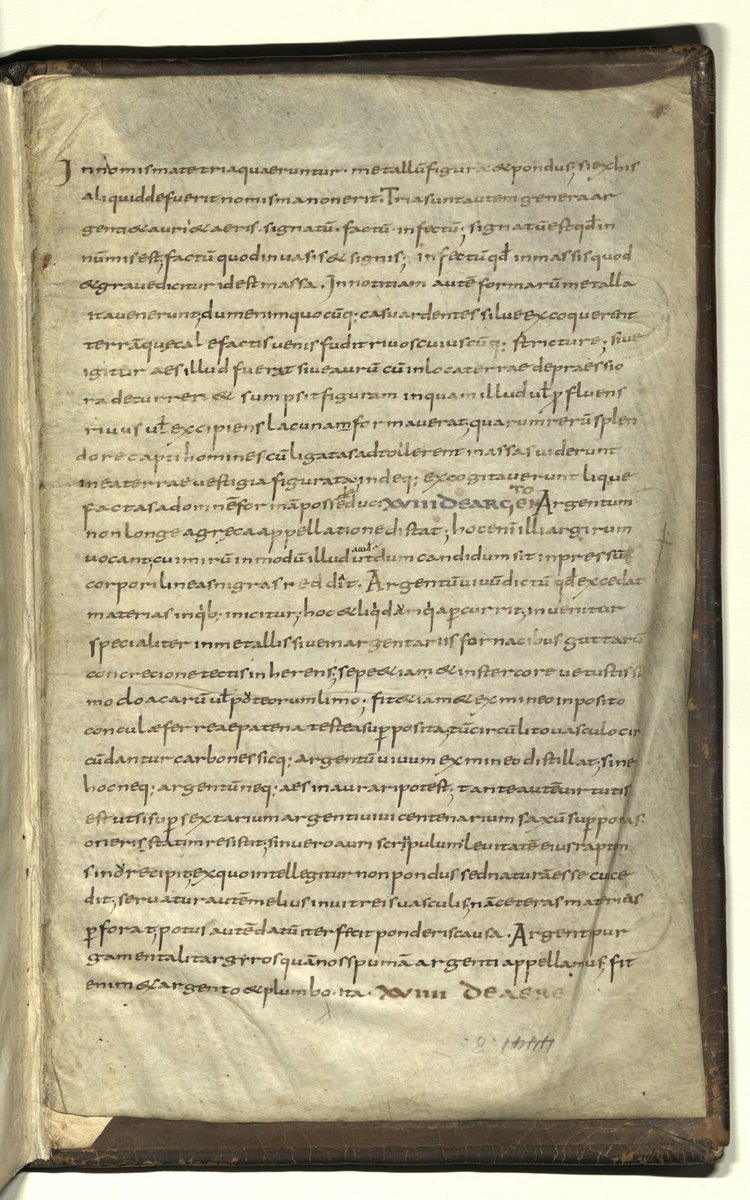 In nomismate tria quaeruntur. metallū figura & pondus; si exhis
aliquid defuerit nomisma non erit. Tria sunt autem genera ar
genti & auri & aeris. signatū. factū. infectū; signatū est qđ in
nūmis est; factū quod in vasis & signis; infectū qđ in massis quod
& grave dicitur id est massa. In notitiam autē formarū metalla
ita venerunt; dum enim quocūq; casu ardentes silve excoquerent
terrā quae calefactis venis fudit rivos cuiuscūq; stricture; sive
igitur aes illud fuerat sive aurū cū in loca terrae depraessio
ra deturreri & sumpsit figuram in quam illud uł pfluens
rivus uł excipiens lacuna formaverat; quarum rerū splen
dore capti homines cū ligatas adtollerent massas viderunt
in ea terrae vestigia figurata; indeq; excogitaverunt lique
factas ad omnē formā posse duci XVIII DE ARGENTO Argentum
non longe a greca appellatione distat; hoc enī illi argirum
vocant; cui mirū in modū illud ut dum candidum sit inpressū
corpori lineas nigras reddit. Argentū vivū dictū qđ excedat
materias in qb; inicitur; hoc & liqda qa percurrit; invenitur
specialiter in metallis sive in argentariis fornacibus guttarū
concretione tectis inherens; sepe &iam & in stercore vetustissi
mo cloacarū uł puteorum limo; fit &iam & ex mineo inposito
conculae ferreae patena testea supposita; tū circūlito vasculo cir
cūdantur carbones sicq; argentū vivum ex mineo distillat; sine
hoc neq; argentū neq; aes inaurari potest; tante autē virtutis
est ut si sup sextarium argenti vivi centenarium saxū supponas
oneri statim resistit; sin vero auri scripulum levitatē eius raptim
sinu recipit; ex quo intellegitur non pondus sed naturā esse cu ce
dit; servatur autē melius in vitreis vasculis; nā ceteras materias
pforat; potus autē datū interficit ponderis causa. Argenti pur
gamenta litargyros quā nos spumā argenti appellamus; fit
enim & argento & plumbo. ita. XVIIII DE AERE